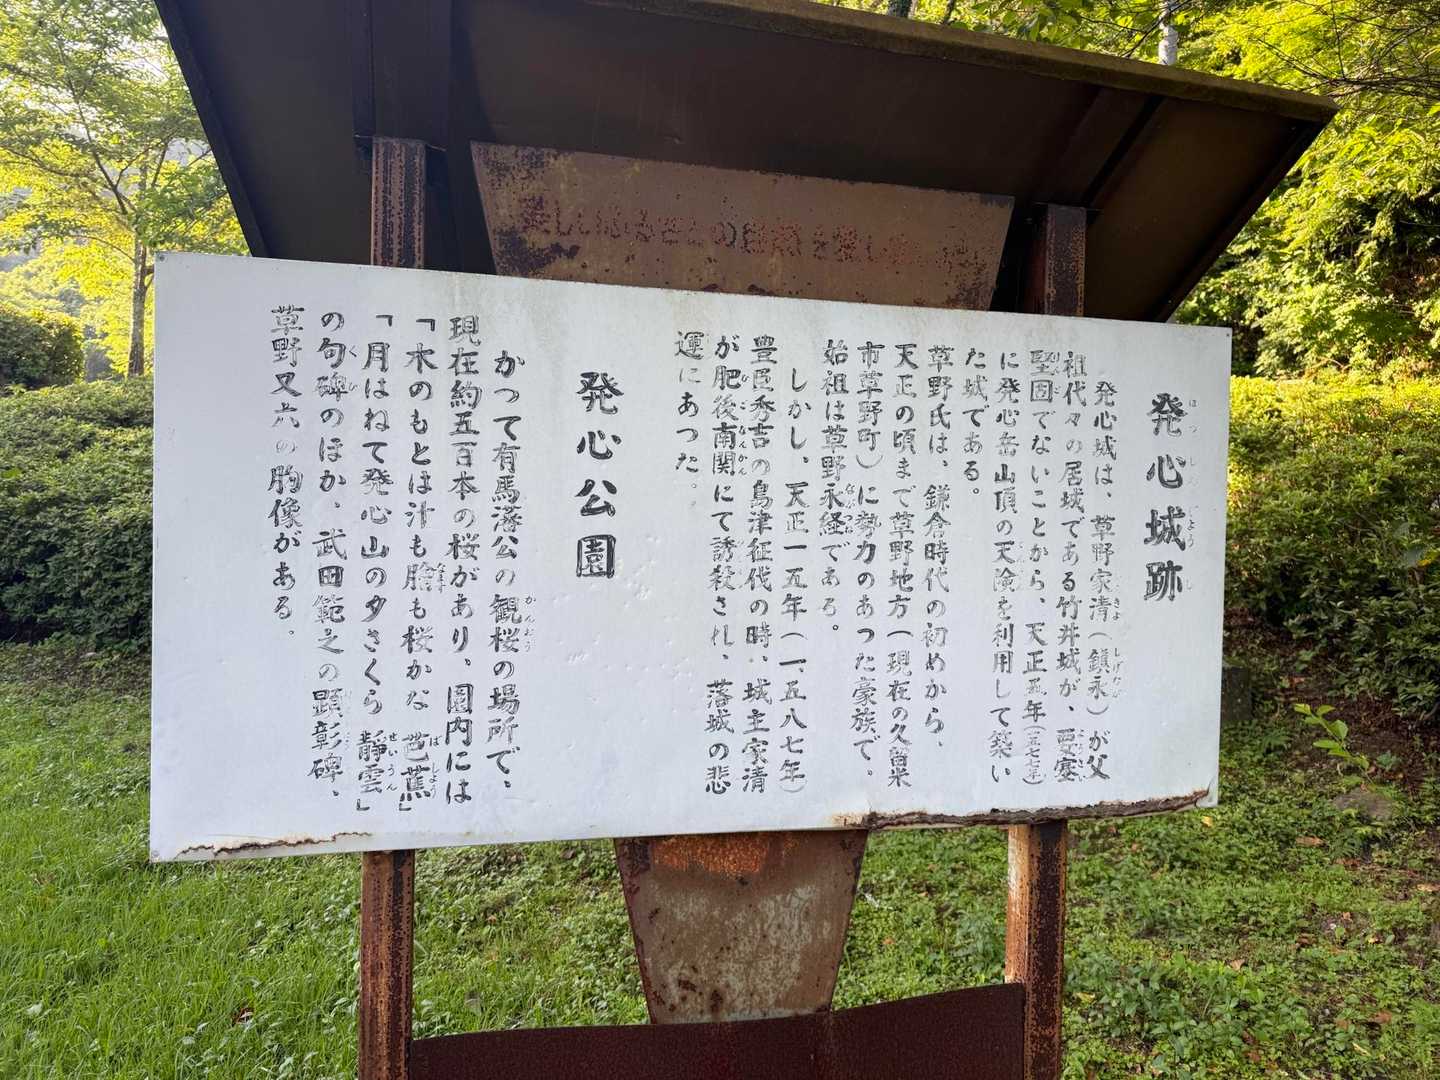 発心城跡
発心城は、草野家清(鎮永)が父
祖代々の居城である竹井城が、要害
堅固でないことから、天正五年(一五七七年)
に発心岳山頂の天険を利用して築い
た城である。
草野氏は、鎌倉時代の初めから、
天正の頃まで草野地方(現在の久留米
市草野町)に勢力のあった豪族で。
始祖は草野永経である。
しかし、天正一五年(一、五八七年)
豊臣秀吉の島津征伐の時、城主家清
が肥後南関にて誘殺され、落城の悲
運にあった。
発心公園
かつて有馬藩公の観桜の場所で、
現在約五百本の桜があり、園内には
「木のもとは汁も膾も桜かな 芭蕉」
「月はねて発心山の夕さくら 静雲」
の句碑のほか、武田範之の顕彰碑、
草野又六の胸像がある。